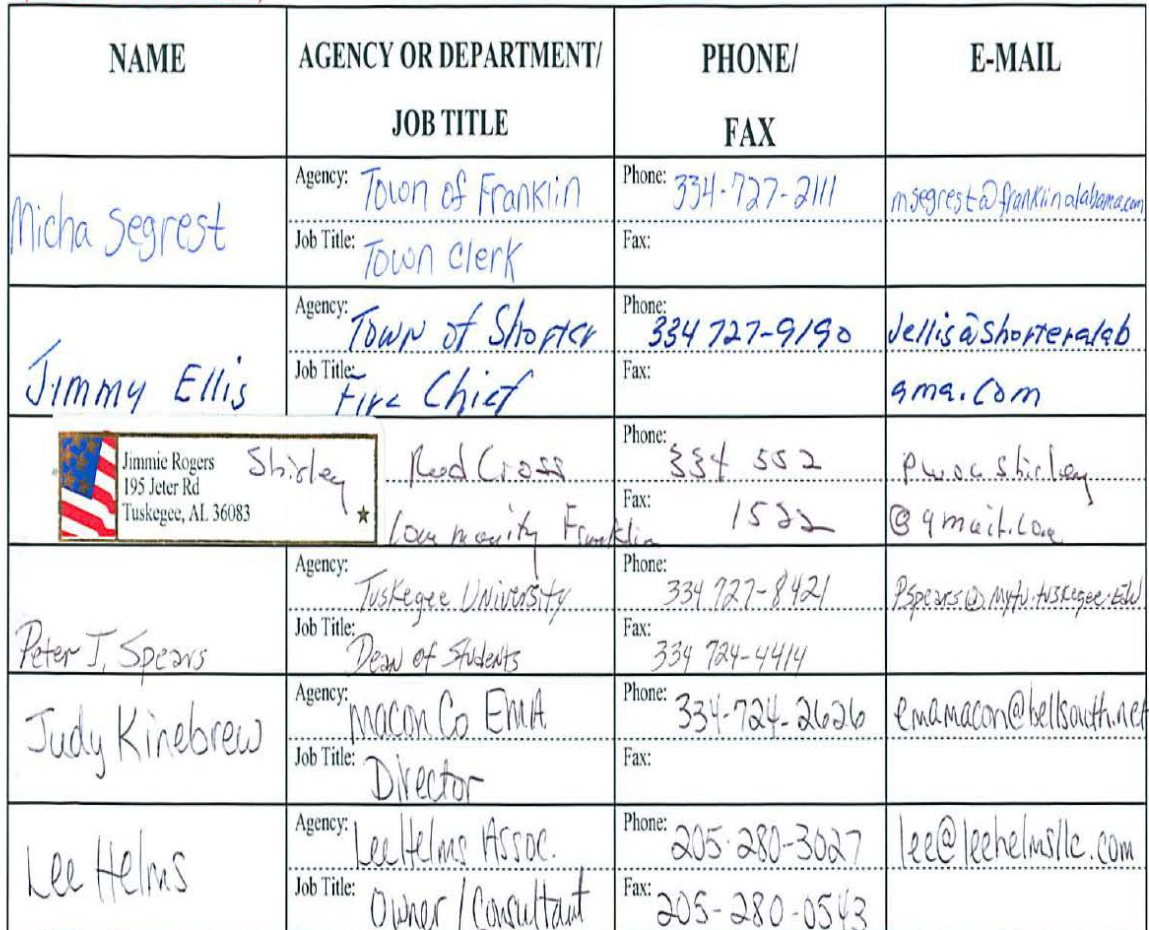 NAME
AGENCY OR DEPARTMENT/
JOB TITLE
PHONE/
FAX
E-MAIL
Micha Segrest
Agency: Town of Franklin
Job Title: Town Clerk
Phone: 334-727-2111
Fax:
msegrest@franklinalabama.com
Jimmy Ellis
Agency: Town of Shorter
Job Title: Fire Chief
Phone: 334 727-9190
Fax:
Jellis@Shorteralab
ama.com
Jimmie Rogers
195 Jeter Rd
Tuskegee, AL 36083
Shirley
Red Cross
Community Franklin
Phone: 334 552
Fax: 1522
@gmail.com
Peter J. Spears
Agency: Tuskegee University
Job Title: Dean of Students
Phone: 334 727-8421
Fax: 334 724-4414
PSpears@mytu.tuskegee.Edu
Judy Kinebrew
Agency: Macon Co EMA
Job Title: Director
Phone: 334-724-2626
Fax:
emamacon@bellsouth.net
Lee Helms
Agency: Lee Helms Assoc.
Job Title: Owner / Consultant
Phone: 205-280-3027
Fax: 205-280-0543
lee@leehelmsllc.com